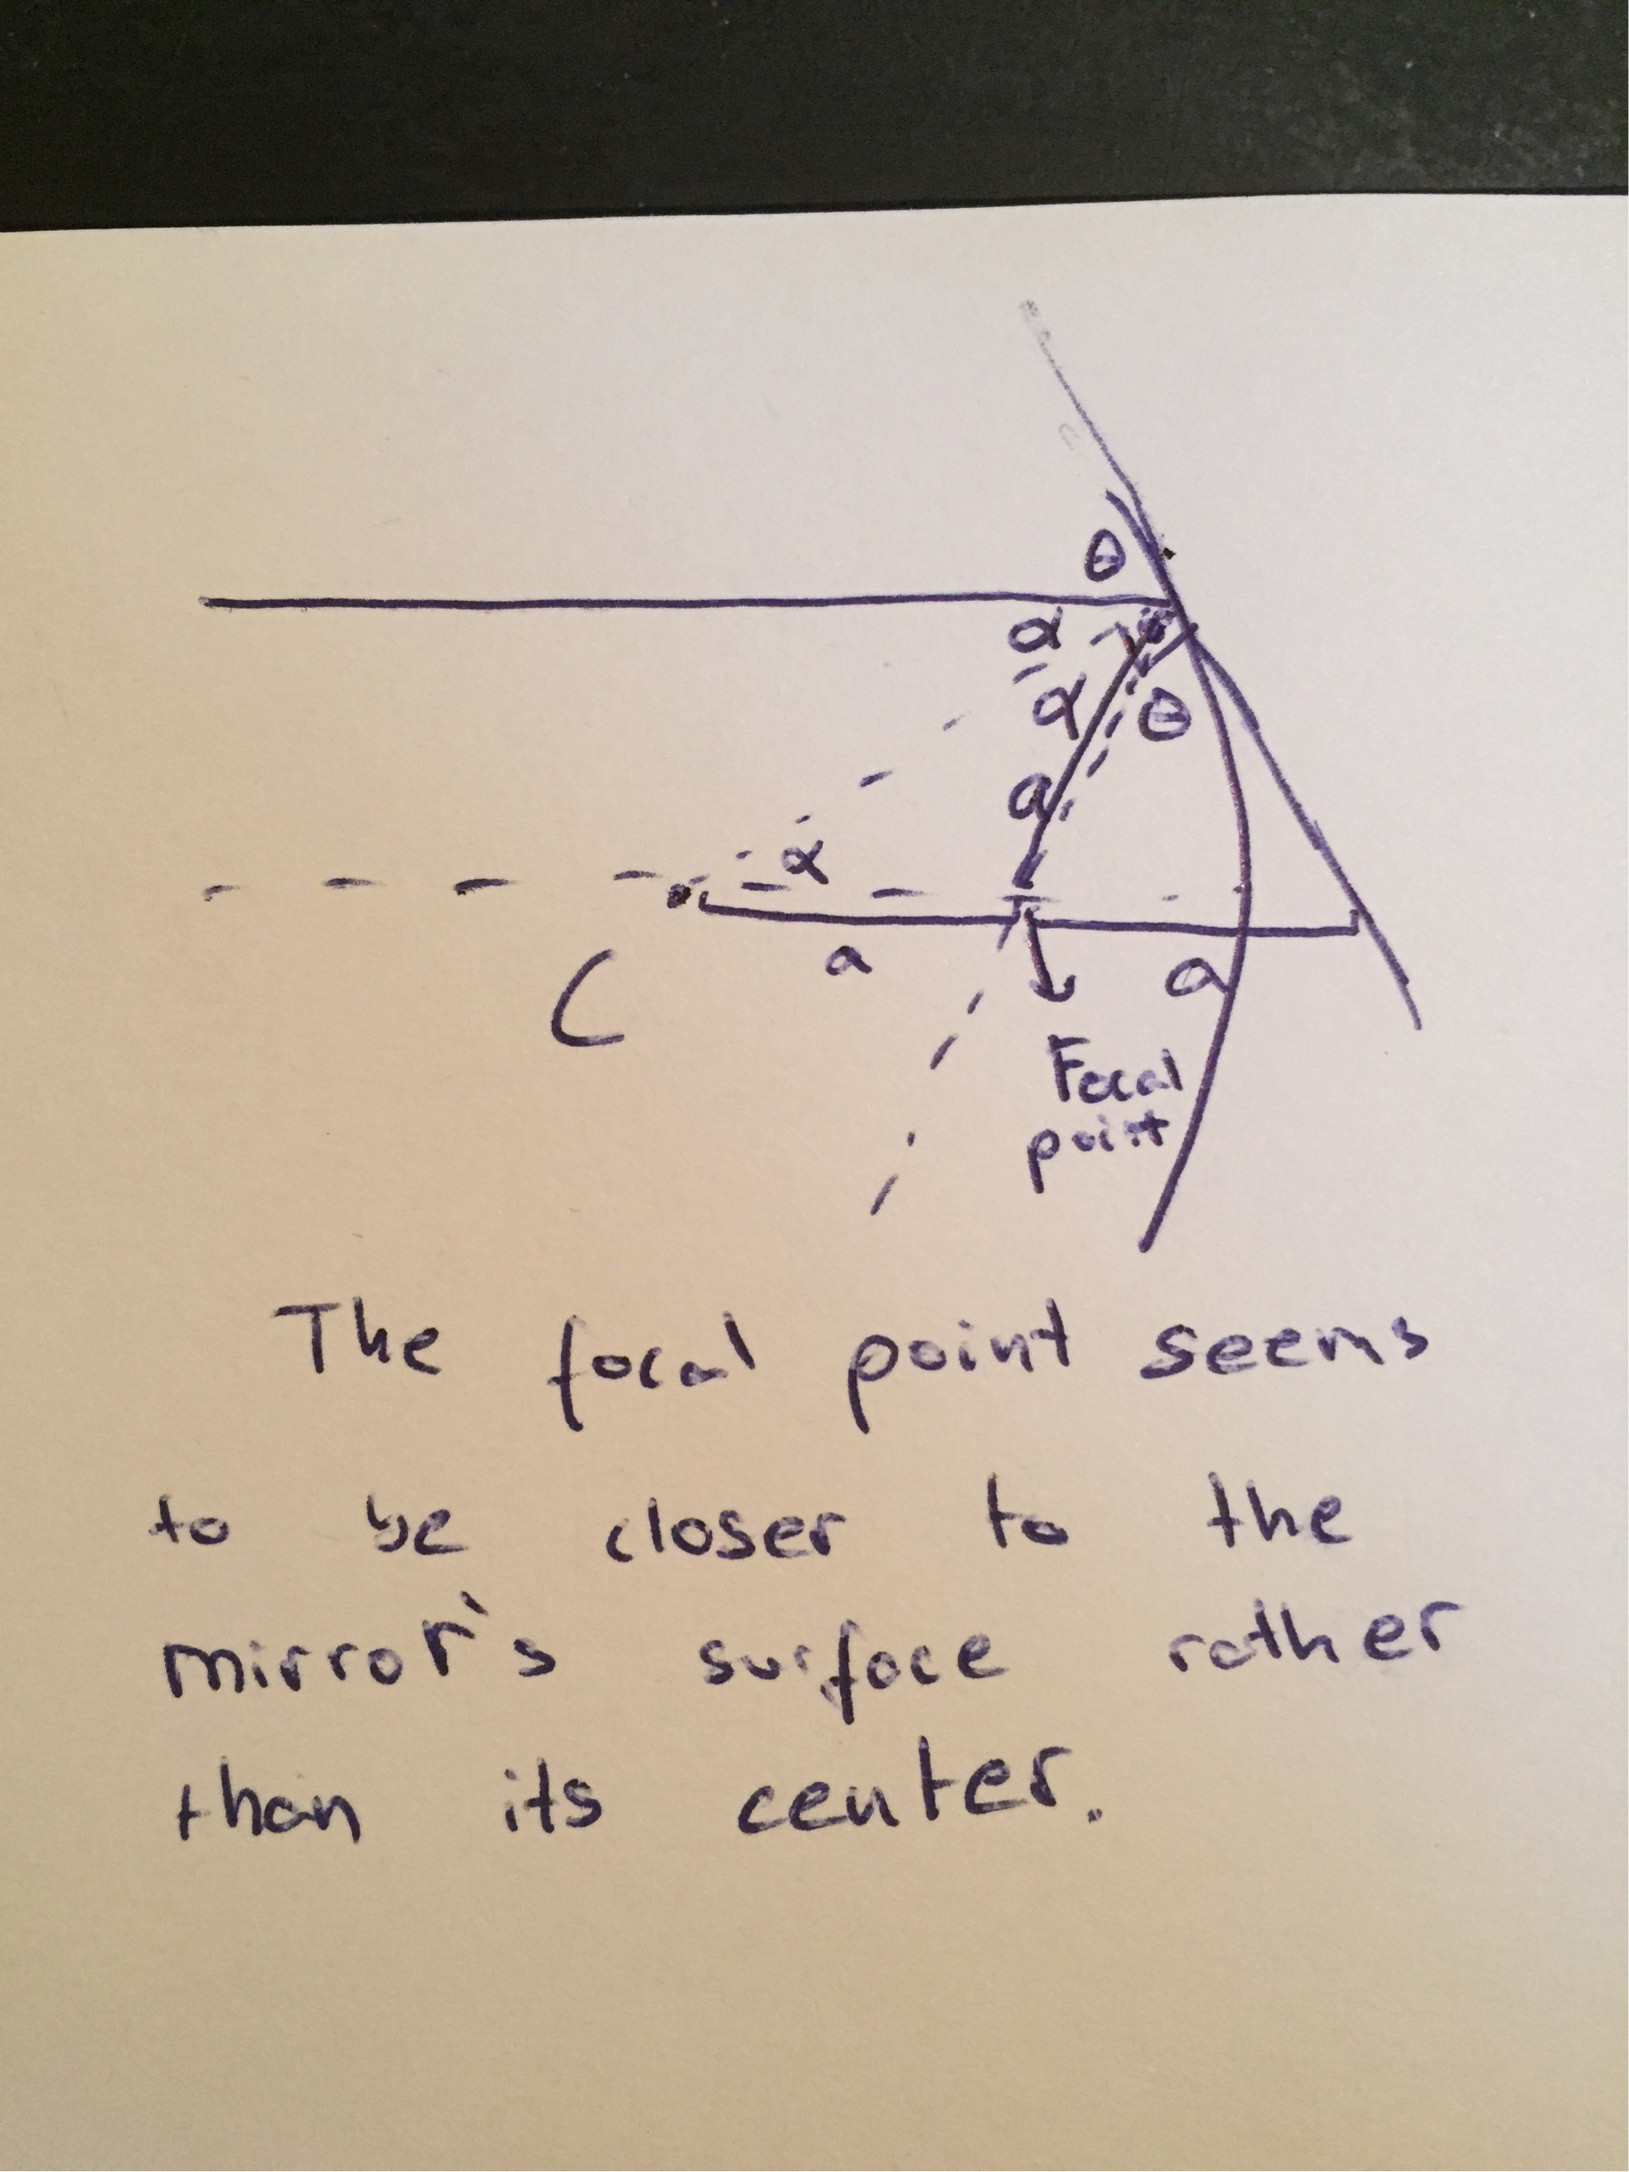 θ
α
α θ
a
α
a
C
a
Focal
point
The focal point seems
to be closer to the
mirror's surface rather
than its center.